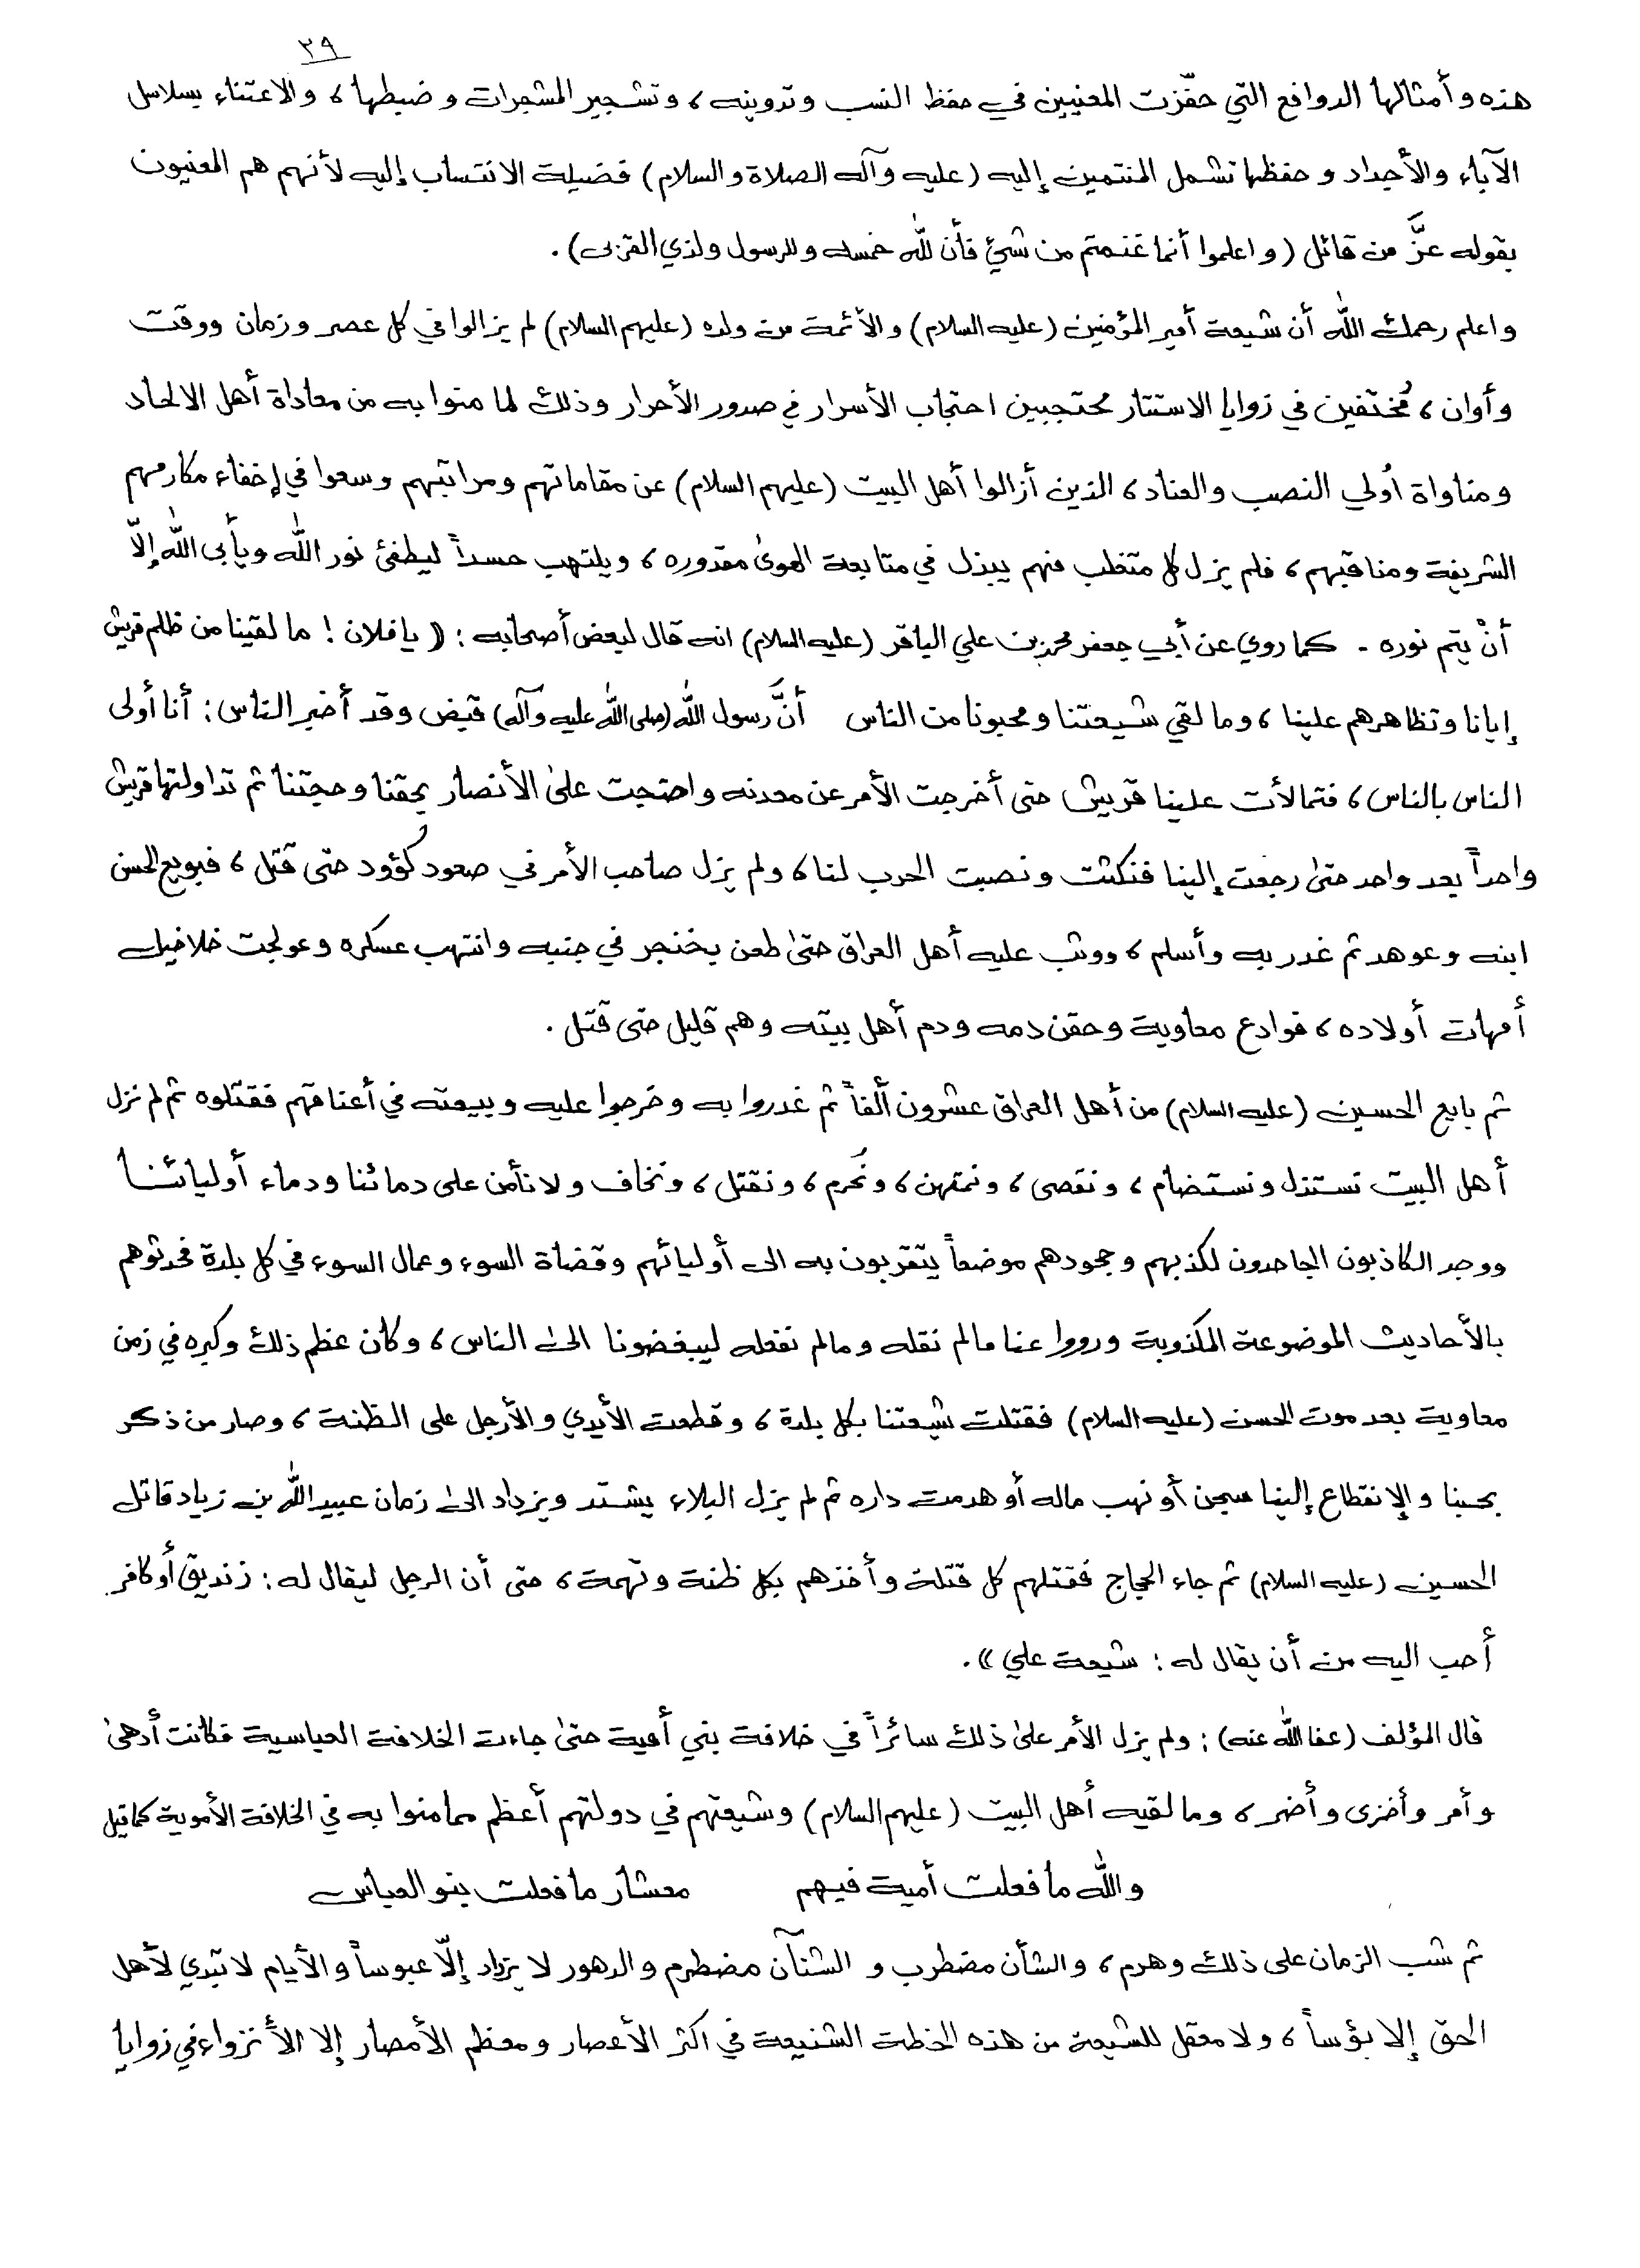 ٣٩
هذه وأمثالها الدوافع التي حفّزت المعنيين في حفظ النسب وتدوينه ، وتشجير المشجرات وضبطها ، والاعتناء بسلاسل
الآباء والأجداد وحفظها تشمل المنتمين إليه (عليه وآله الصلاة والسلام) فضيلة الانتساب إليه لأنهم هم المعنيون
بقوله عزَّ من قائل (واعلموا أنما غنمتم من شيءٍ فأن لله خمسه وللرسول ولذي القربى) .
واعلم رحمك الله أن شيعة أمير المؤمنين (عليه السلام) والأئمة من ولده (عليهم السلام) لم يزالوا في كل عصر وزمان ووقت
وأوان ، مُختفين في زوايا الاستتار محتجبين احتجاب الأسرار في صدور الأحرار وذلك لما منوا به من معاداة أهل الالحاد
ومناواة أُولي النصب والعناد ، الذين أزالوا أهل البيت (عليهم السلام) عن مقاماتهم ومراتبهم وسعوا في إخفاء مكارمهم
الشريفة ومناقبهم ، فلم يزل كل متغلب منهم يبذل في متابعة الهوىٰ مقدوره ، ويلتهب حسداً ليطفئ نور الله ويأبى الله إلاّ
أنْ يتم نوره - كما روي عن أبي جعفر محمد بن علي الباقر (عليه السلام) انه قال لبعض أصحابه : (( يا فلان ! ما لقينا من ظلم قريش
إيانا وتظاهرهم علينا ، وما لقي شيعتنا ومحبونا من الناس أنَّ رسول الله (صلى الله عليه وآله) قبض وقد أخبر الناس : أنا أولى
الناس بالناس ، فتمالأت علينا قريش حتى أخرجت الأمر عن معدنه واحتجت علىٰ الأنصار بحقنا وحجتنا ثم تداولتها قريش
واحداً بعد واحد حتىٰ رجعت إلينا فنكثت ونصبت الحرب لنا ، ولم يزل صاحب الأمر في صعود كؤود حتى قتل ، فبويع الحسن
ابنه وعوهد ثم غدر به وأسلم ، ووثب عليه أهل العراق حتىٰ طعن بخنجر في جنبه وانتهب عسكره وعولجت خلاخيل
أمهات أولاده ، فوادع معاوية وحقن دمه ودم أهل بيته وهم قليل حتى قتل .
ثم بايع الحسين (عليه السلام) من أهل العراق عشرون ألفاً ثم غدروا به وخرجوا عليه وبيعته في أعناقهم فقتلوه ثم لم نزل
أهل البيت نستذل ونستضام ، ونقصى ، ونمتهن ، ونُحرم ، ونقتل ، ونخاف ولا نأمن على دمائنا ودماء أوليائنا
ووجد الكاذبون الجاحدون لكذبهم وجحودهم موضعاً يتقربون به الى أوليائهم وقضاة السوء وعمال السوء في كل بلدة فحدثوهم
بالأحاديث الموضوعة المكذوبة ورووا عنا مالم نقله ومالم نفعله ليبغضونا الىٰ الناس ، وكان عظم ذلك وكبره في زمن
معاوية بعد موت الحسن (عليه السلام) فقتلت شيعتنا بكل بلدة ، وقطعت الأيدي والأرجل على الظنة ، وصار من ذكر
بحبنا والإنقطاع إلينا سجن أو نهب ماله أو هدمت داره ثم لم يزل البلاء يشتد ويزداد الىٰ زمان عبيدالله بن زياد قاتل
الحسين (عليه السلام) ثم جاء الحجاج فقتلهم كل قتلة وأخذهم بكل ظنة وتهمة ، حتى أن الرجل ليقال له : زنديق أو كافر
أحب اليه من أن يقال له : شيعة علي )) .
قال المؤلف (عفا الله عنه) : ولم يزل الأمر علىٰ ذلك سائراً في خلافة بني أمية حتىٰ جاءت الخلافة العباسية فكانت أدهىٰ
وأمر وأخزى وأضر ، وما لقيه أهل البيت (عليهم السلام) وشيعتهم في دولتهم أعظم مما منوا به في الخلافة الأموية كما قيل
والله ما فعلت أمية فيهم معشار ما فعلت بنو العباس
ثم شب الزمان على ذلك وهرم ، والشأن مضطرب و الشنآن مضطرم والدهور لا يزداد إلاّ عبوساً والأيام لا تبدي لأهل
الحق إلا بؤساً ، ولا معقل للشيعة من هذه الخطة الشنيعة في اكثر الأعصار ومعظم الأمصار إلا الأنزواء في زوايا